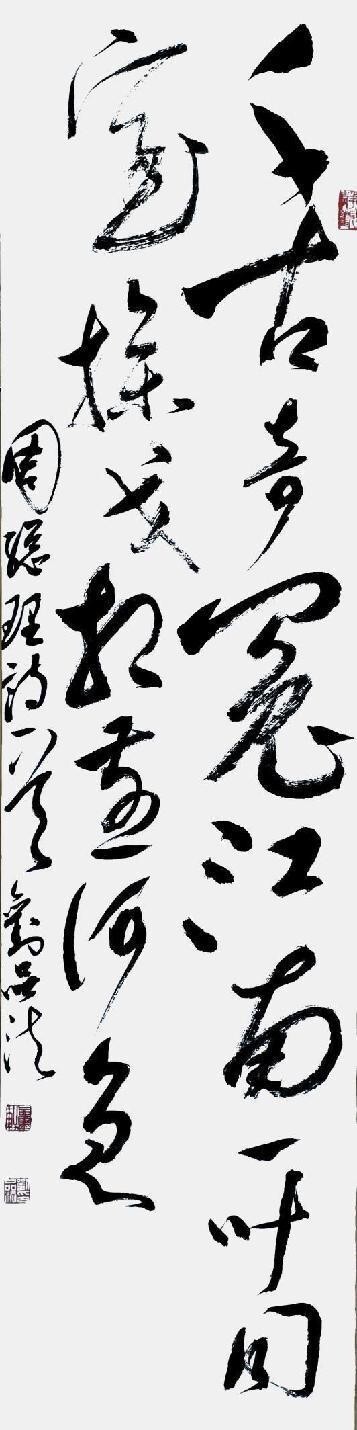 千古奇冤江南一叶同
室操戈相煎何急
周总理诗一首 刘品法